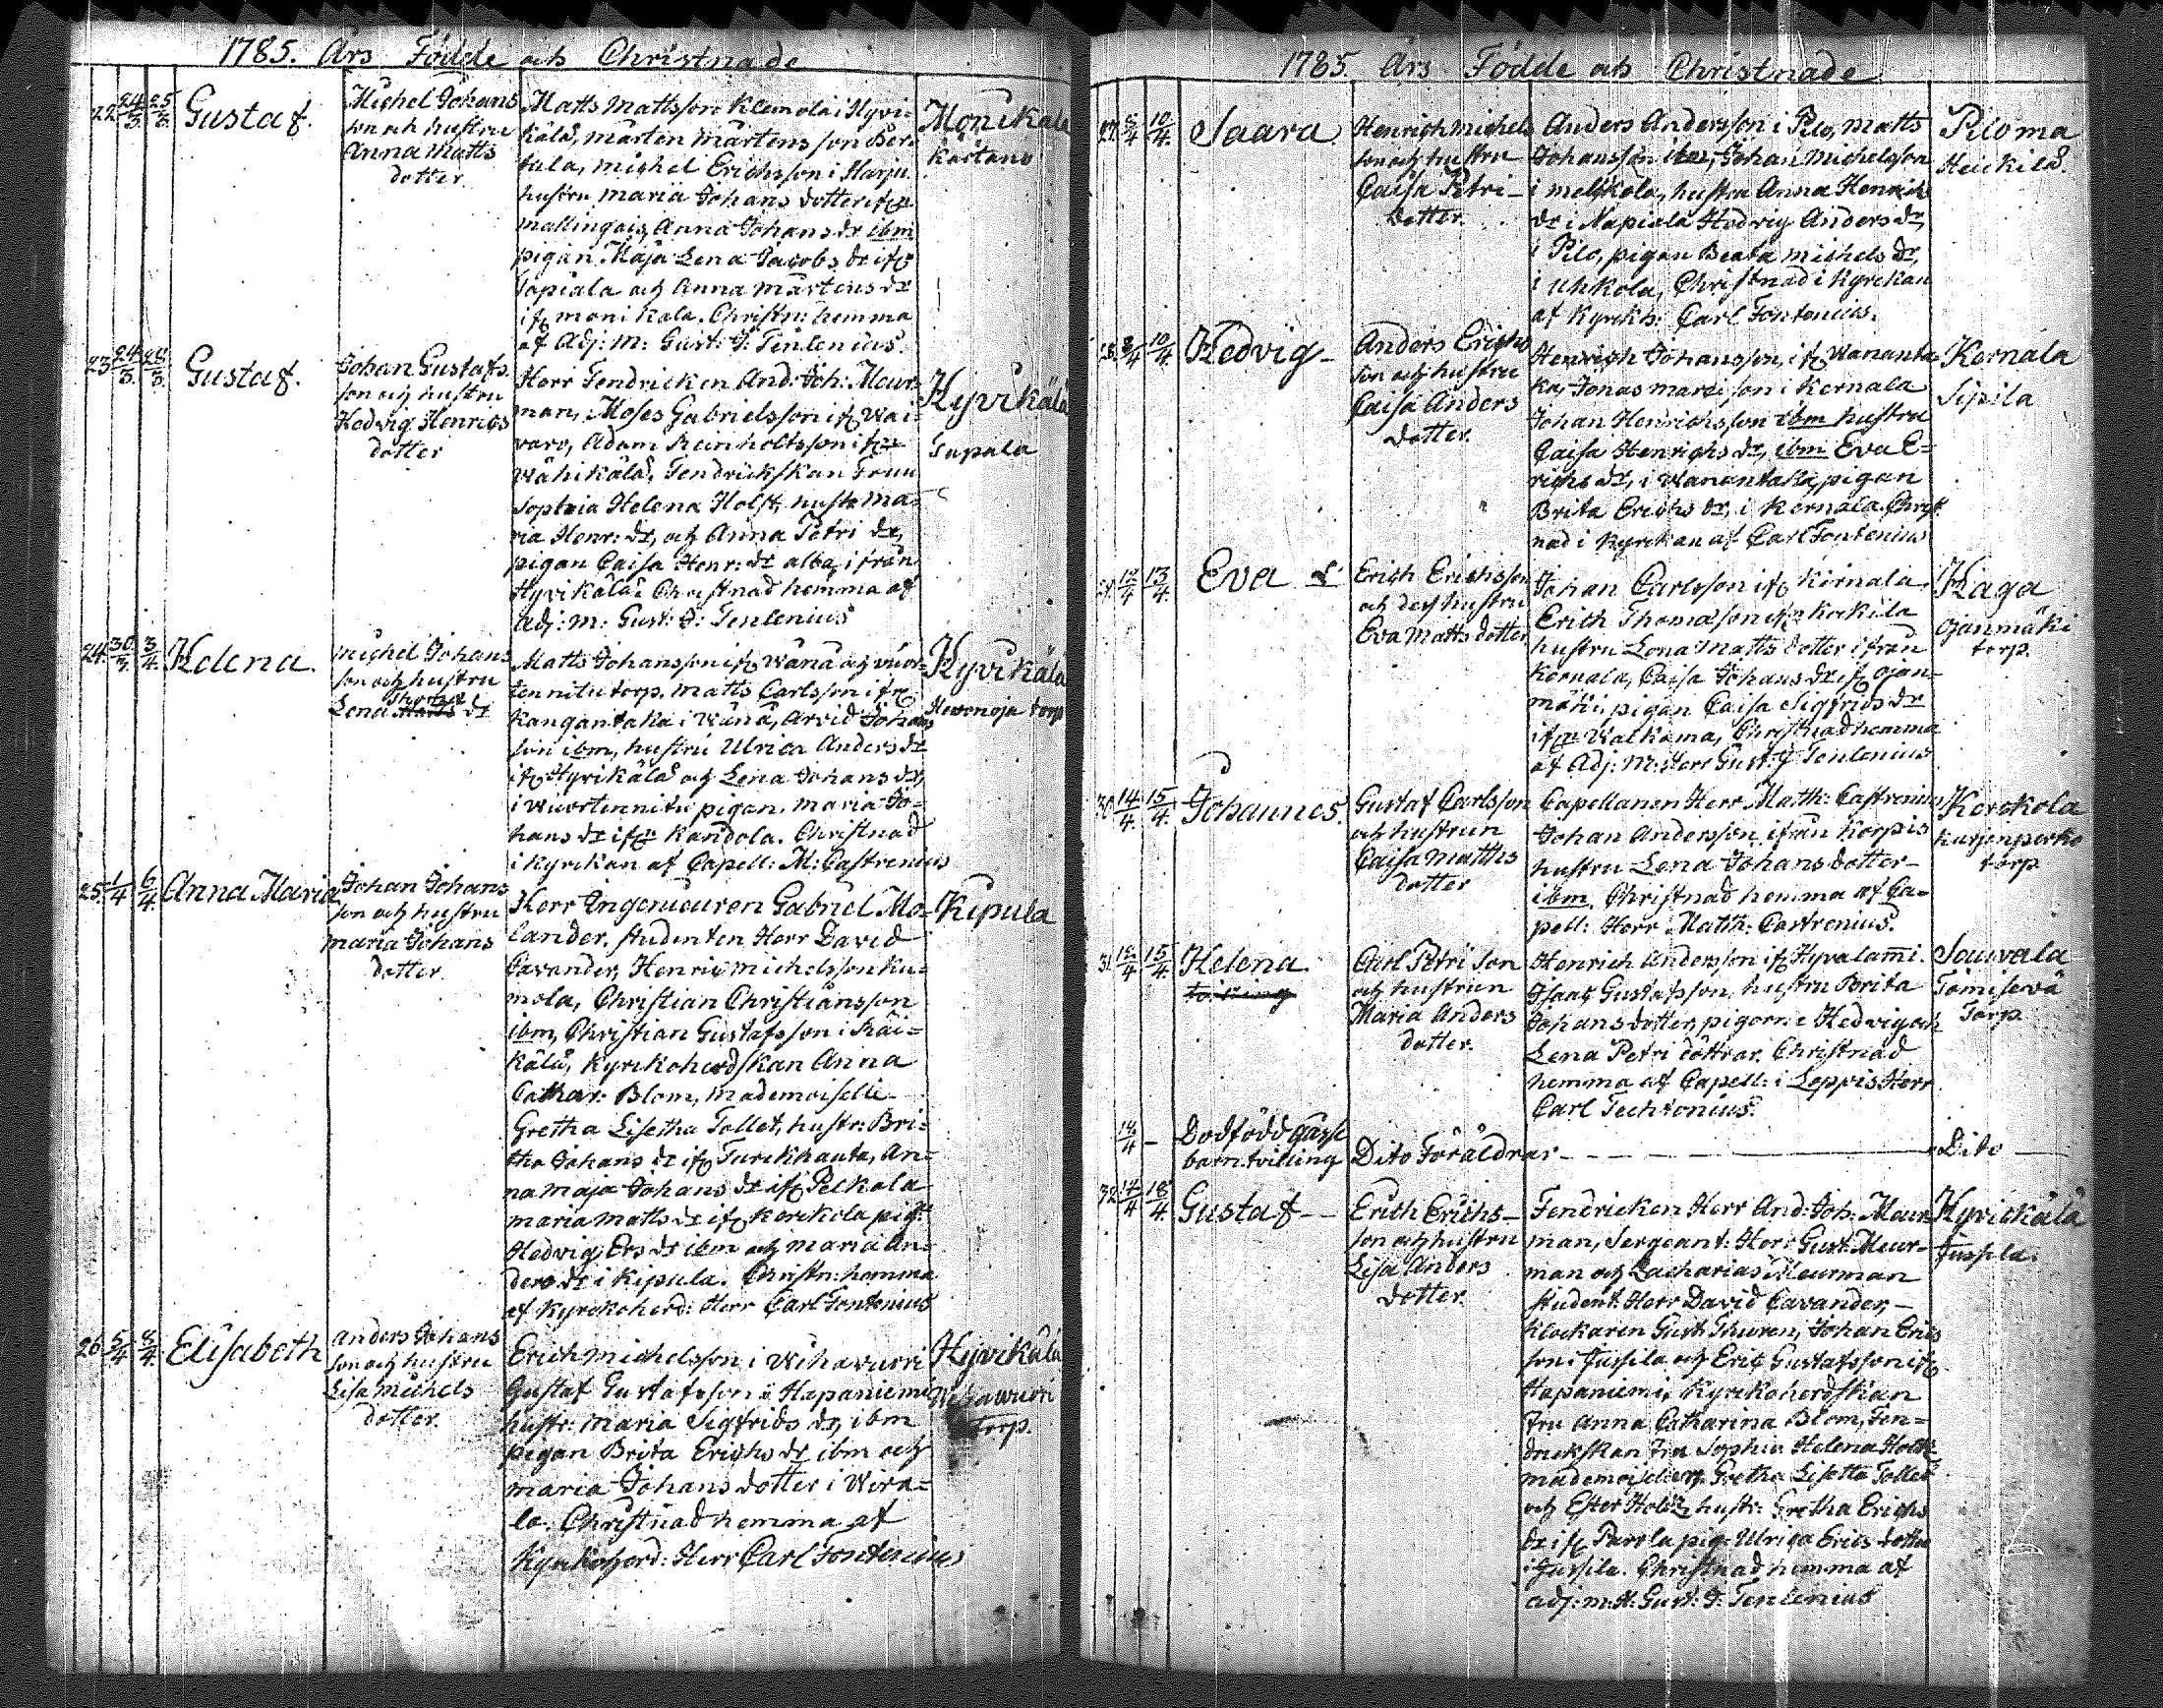 1785. Års Födde och Christnade
22 24/3 25/3 Gustaf.
Michel Johans
son och hustru
Anna Matts
dotter.
Matts Mattsson Klemola i Hyvi-
kälä, Mårten Mårtensson Ber-
tula, Michel Erichsson i Harju
hustru Maria Johans dotter ifrn
Mallingais, Anna Johans dr ibm
pigan Maja Lena Jacobs dr ifrn
Sapiala och Anna Mårtens dr
ifrn Monikala. Christn: hemma
af Adj: M: Gust: J: Tenlenius.
Monikala
Kartano
23 24/3 28/3 Gustaf.
Johan Gustafs
son och hustru
Hedvig Henrics
dotter
Herr Fendricken And: Joh: Meur-
man, Moses Gabrielsson ifrn Wai-
varo, Adam Reinholtsson ifrn
Wähikälä, Fendrickskan Fruu
Sophia Helena Holst, hustr Ma-
ria Henr: dr, och Anna Petri dr,
pigan Caisa Henr: dr alla ifrån
Hyvikälä Christnad hemma af
Adj: M: Gust: J: Tenlenius
Hyvikälä
Tupala
24. 30/3 3/4 Helena.
Michel Johans
son och hustru
Thomas
Lena Matts dr
Matts Johansson ifrn Wänä och Wuor-
tennitu torp. Matts Carlsson ifrn
Kangantaka i Wänä, Arvid Johans
son ibm, hustru Ulrica Anders dr
ifrn Hyvikälä och Lena Johans dr,
i Wuortennitu pigan Maria Jo-
hans dr ifrn Kandola. Christnad
i Kyrkan af Capell: M: Castrenius
Hyvikälä
Hevonoja torp
25. 1/4 6/4. Anna Maria
Johan Johans
son och hustru
Maria Johans
dotter.
Herr Ingenieuren Gabriel Mo-
lander, studenten Herr David
Cavander, Henric Michelsson Ku-
mola, Christian Christiansson
ibm, Christian Gustafsson i Räi-
kälä, Kyrkoherdskan Anna
Cathar: Blom, Mademoiselle
Gretha Lisetha Tollet, hustr: Bri-
tha Johans dr ifrn Turckhauta, An-
na Maja Johans dr ifrn Pelkola
Maria Matts dr ifrn Kerckola pig:
Hedvig Ers dr ibm och Maria An-
ders dr i Kipula. Christn: hemma
af Kyrkoherd: Herr Carl Fontenius
Kipula
26 5/4 8/4. Elisabeth
Anders Johans
son och hustru
Lisa Michels
dotter.
Erich Michelsson i Wihawuori
Gustaf Gustafsson i Hapaniemi
hustr: Maria Sigfrids dr, ibm
pigan Brita Erichs dr ibm och
Maria Johans dotter i Wira-
la. Christnad hemma af
Kyrkoherd: Herr Carl Fontenius
Hyvikälä
Wihawuori
torp.
1785. Års Födde och Christnade
27. 8/4 10/4. Saara.
Henrich Michels
son och hustru
Caisa Petri-
dotter.
Anders Andersson i Pilo, Matts
Johansson ibm, Johan Michelsson
i Melkola, hustru Anna Henrichs
dr i Napiala Hedvig Anders dr,
i Pilo, pigan Beata Michels dr,
i Uhkola, Christnad i Kyrckan
af Kyrkh: Carl Fontenius.
Piloma
Heickilä.
28. 8/4 10/4. Hedvig-
Anders Erichs
son och hustru
Caisa Anders
dotter.
Henrich Johansson, ifrn Wananta-
ka, Jonas Marcisson i Kernala
Johan Henrichsson ibm hustru
Caisa Henrichs dr, ibm Eva E-
richs dr, i Wanantaka, pigan
Brita Erichs dr, i Kernala. Christ
nad i Kyrckan af Carl Fontenius
Kernala
Sipilä
29. 12/4 13/4. Eva
Erich Erichsson
och dess hustru
Eva Matts dotter
Johan Carlsson ifrn Kernala
Erich Thomasson ifrn Kockila
hustru Lena Matts dotter ifrån
Kernala, Caisa Johans dr ifrn Ojan-
mäki, pigan Caisa Sigfrids dr
ifrn Walkama, Christnad hemma
af Adj: M: Herr Gust: J: Tenlenius
Haga
Ojanmäki
torp.
30 14/4. 15/4. Johannes.
Gustaf Carlsson
och hustrun
Caisa Matths
dotter
Capellanen Herr Math: Castrenius
Johan Andersson ifrån Korpis
hustru Lena Johans dotter-
ibm. Christnad hemma af Ca-
pell: Herr Math: Castrenius.
Kerckola
Kurjenperko
torp
31. 12/4 15/4. Helena
tvilling
Carl Petri son
och hustrun
Maria Anders
dotter.
Henrich Andersson ifrn Hyvalam̅i.
Isaac Gustafsson, hustru Brita
Johans dotter, pigorne Hedvig och
Lena Petri döttrar. Christnad
hemma af Capell: i Leppis Herr
Carl Techtonius.
Sauvala
Tomisevä
Torp.
14/4 - Dödfödd gåsse
barn tvilling
Dito Föräldrar - - - -
Dito
32 14/4 18/4. Gustaf-
Erich Erichs-
son och hustru
Lisa Anders
dotter.
Fendricken Herr And: Joh: Meur-
man, Sergeant: Herr Gust: Meur-
man och Zacharias Meurman
student: Herr David Cavander,-
Klockaren Gust: Thuren, Johan Erics
son i Jussila och Eric Gustafsson ifrn
Hapaniemi, Kyrkoherdskan
Fru Anna Catharina Blom, Fen-
drickskan Fru Sophia Helena Holst
Mademoiseller Gretha Lisetta Tollet
och Ester Holst, hustr: Gretha Erichs
dr ifrn Parola pig: Ulrica Erics dotter
i Jussila. Christnad hemma af
Adj: M: H: Gust: J: Tenlenius
Hyvickälä
Jussila.